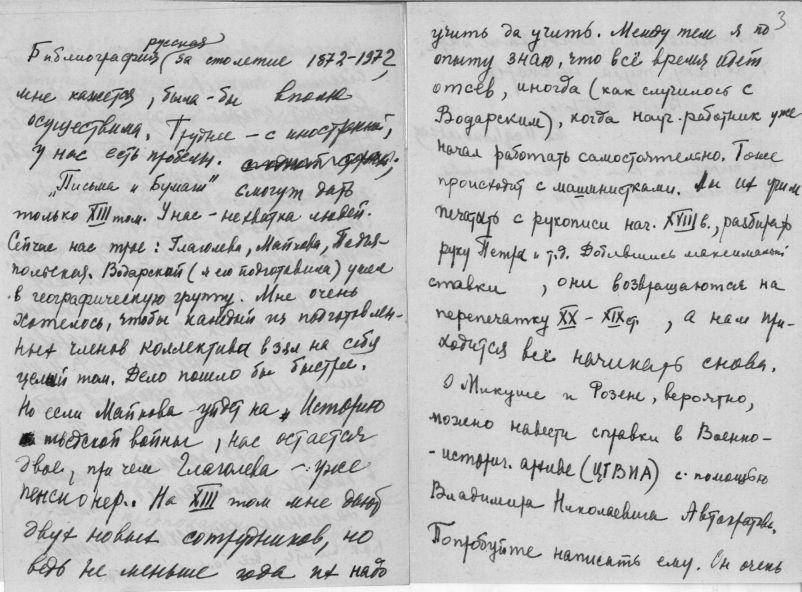 русская
Библиография (за столетие 1872-1972,
мне кажется, была-бы вполне
осуществима. Труднее – с иностранной,
у нас есть пробелы.
„Письма и Бумаги" смогут дать
только XIII том. У нас – нехватка людей.
Сейчас нас трое: Глаголева, Майкова, Подъя-
польская. Водарский (я его подготовила) ушел
в географическую группу. Мне очень
хотелось, чтобы каждый из подготовлен-
ных членов коллектива взял на себя
целый том. Дело пошло бы быстрее.
Но если Майкова уйдет на „Историю
шведской войны, нас остается
двое, при чем Глаголева – уже
пенсионер.. На XIII том мне дают
двух новых сотрудников, но
ведь не меньше года их надо
3
учить да учить. Между тем я по
опыту знаю, что всё время идет
отсев, иногда (как случилось с
Водарским), когда науч. работник уже
начал работать самостоятельно. Тоже
происходит с машинистками. Мы их учим
печатать с рукописи нач. XVIII в., разбирать
руку Петра и т.д. Добившись максимальной
ставки, они возвращаются на
перепечатку XX – XIX ст., а нам при-
ходится всё начинать снова.
О Микуше и Розене, вероятно,
можно навести справки в Военно-
-историч. архиве (ЦГВИА) с помощью
Владимира Николаевича Автократова.
Попробуйте написать ему. Он очень